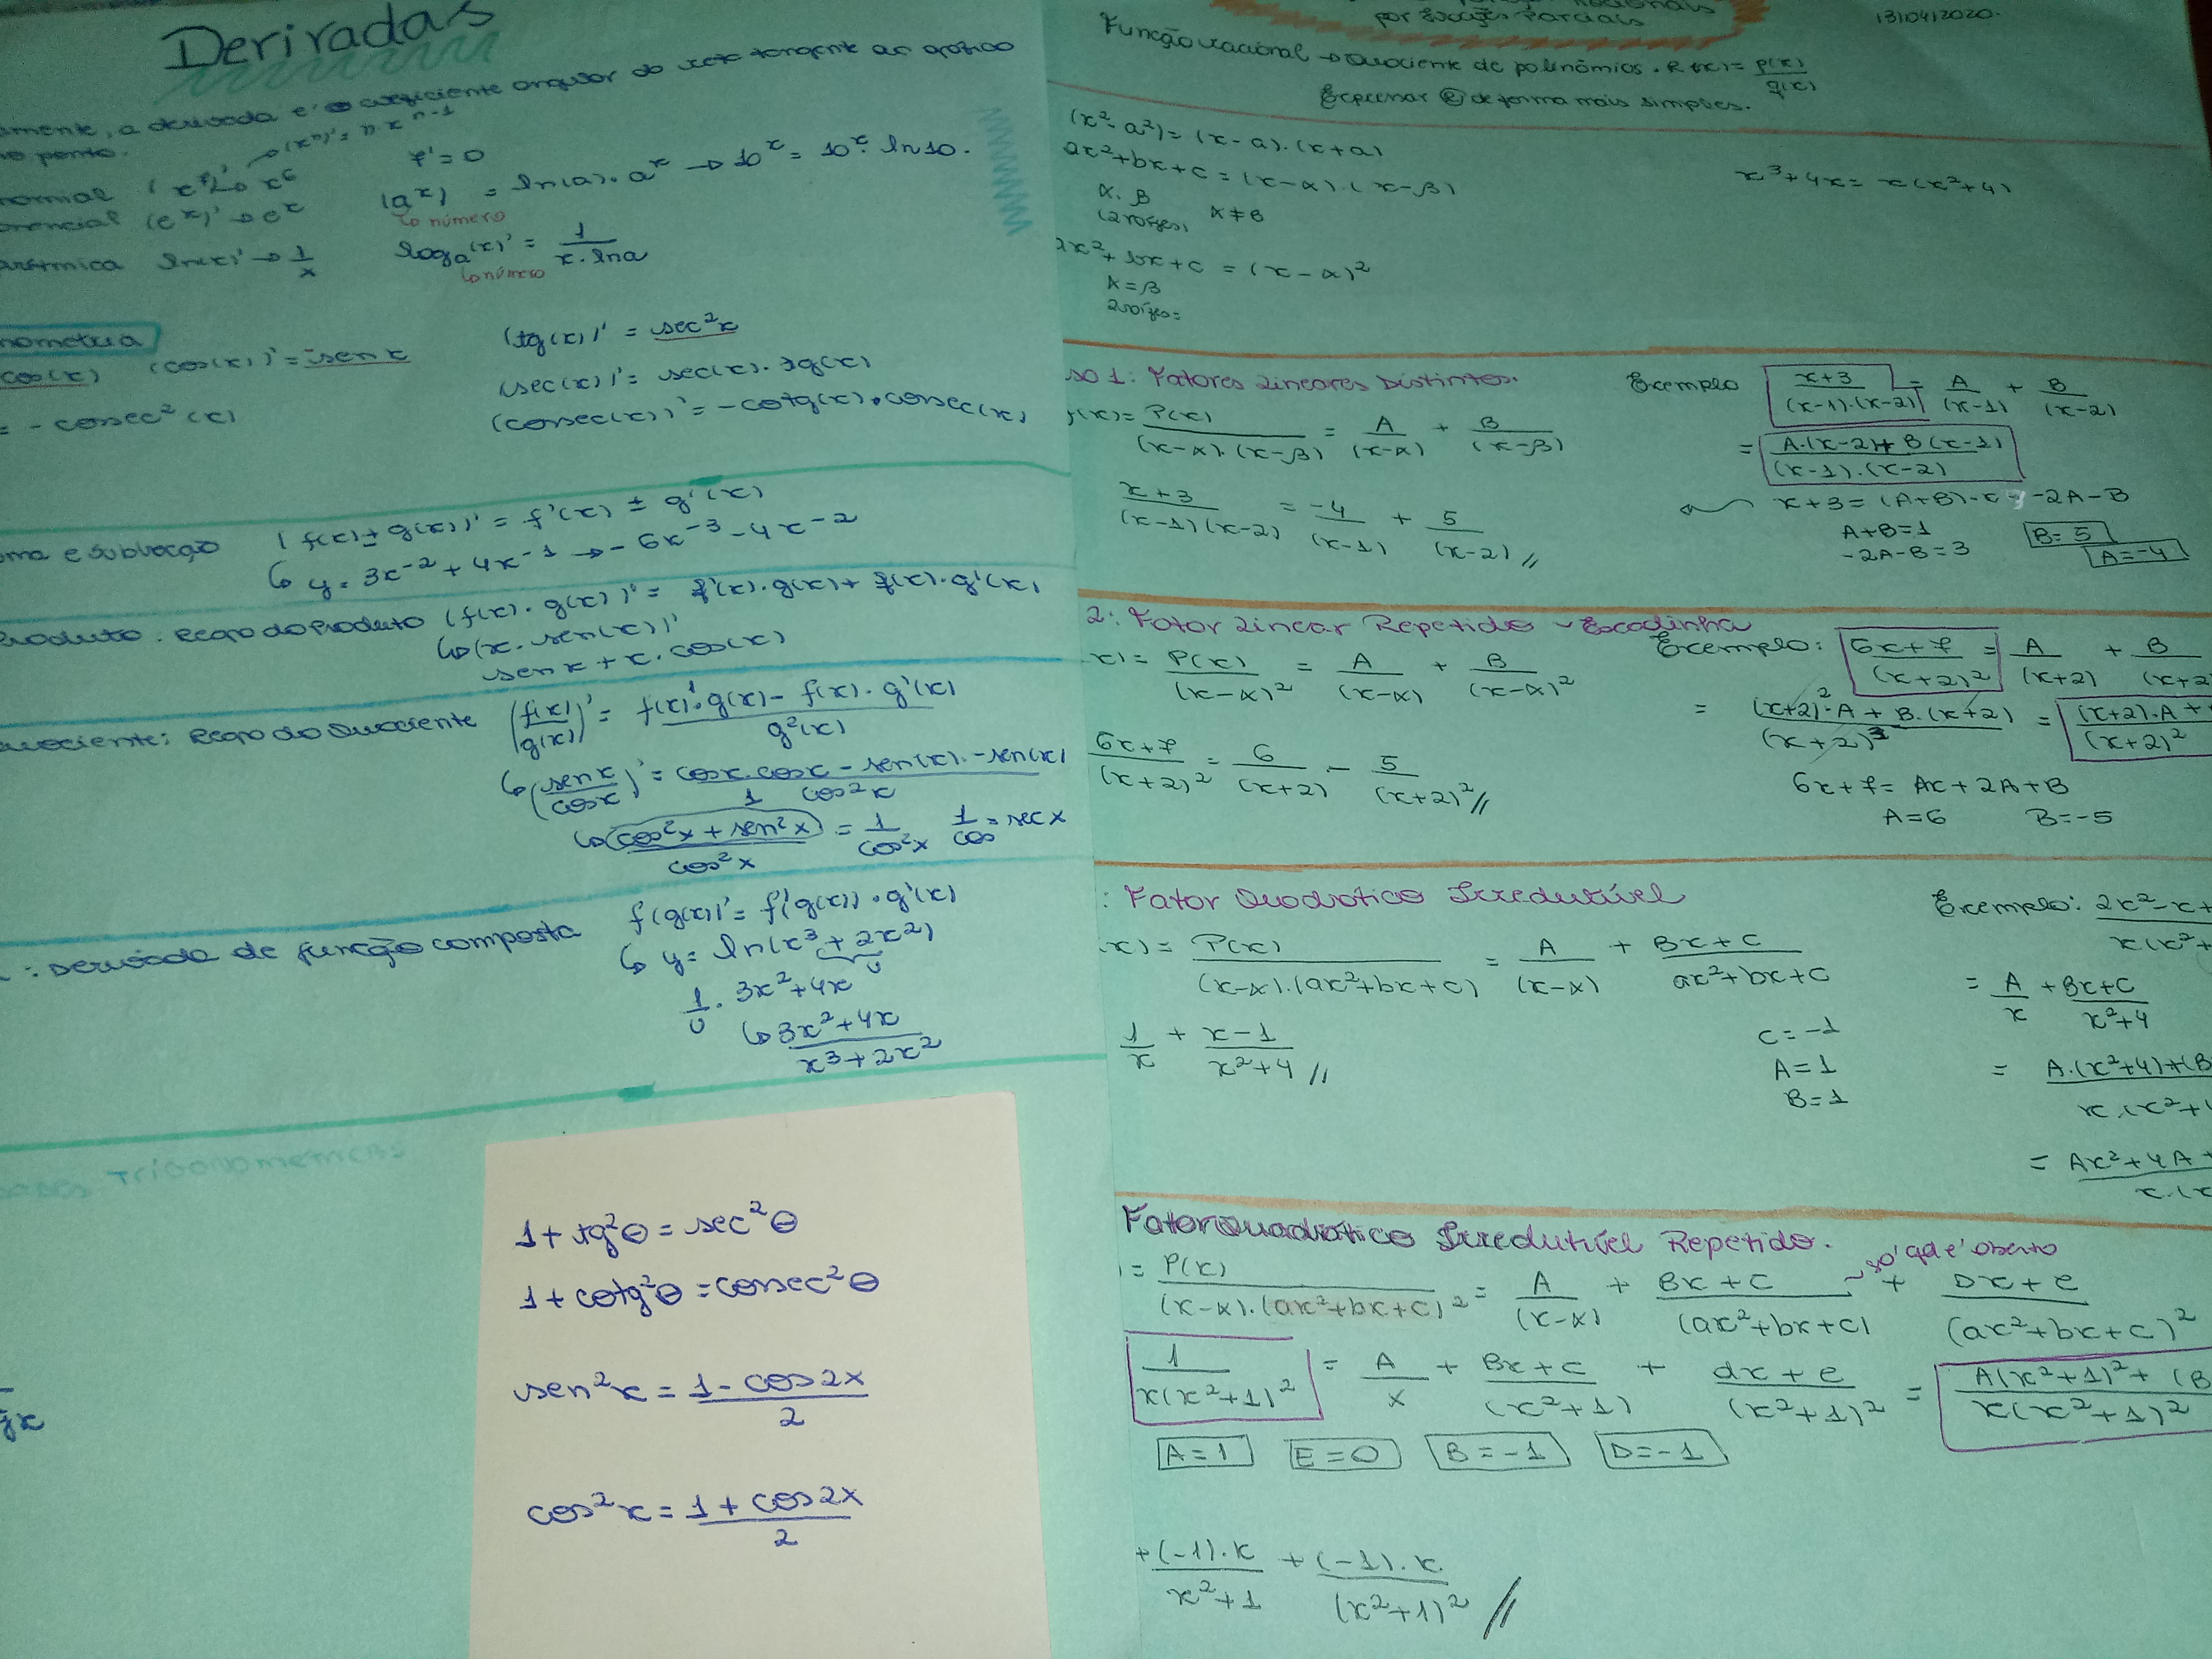 Derivadas
amente, a derivada é o coeficiente angular da reta tangente ao gráfico
no ponto.
(xⁿ)' = n x^(n-1)
nomial (x⁷)' → x⁶ 7' = 0
nencial (e^x)' → e^x (a^x) = ln(a). a^x → 10^x = 10^x. ln10.
↳ número
arítmica ln(x)' → 1/x log_a(x)' = 1/(x. ln a)
↳ número
nometria
cos(x) (cos(x))' = -sen x (tg(x))' = sec²x
(sec(x))' = sec(x). tg(x)
= - cossec²(x) (cossec(x))' = -cotg(x). cossec(x)
ma e subtração (f(x) ± g(x))' = f'(x) ± g'(x)
↳ y = 3x⁻² + 4x⁻¹ → -6x⁻³ - 4x⁻²
Produto: Regra do Produto (f(x). g(x))' = f'(x). g(x) + f(x). g'(x)
↳ (x. sen(x))'
sen x + x. cos(x)
uociente: Regra do Quociente (f(x)/g(x))' = (f(x)'. g(x) - f(x). g'(x))/g²(x)
↳ (sen x/cos x)' = (cos x. cos x - sen(x). -sen(x))/cos²x
↳ (cos²x + sen²x)/cos²x = 1/cos²x 1/cos = sec x
: Derivada de função composta f(g(x))' = f'(g(x)). g'(x)
↳ y = ln(x³ + 2x²)
u
1/u. 3x² + 4x
↳ (3x² + 4x)/(x³ + 2x²)
Trigonometricas
1 + tg²θ = sec²θ
1 + cotg²θ = cossec²θ
sen²x = (1 - cos2x)/2
cos²x = (1 + cos2x)/2
por Frações Parciais
13/04/2020.
Função racional → Quociente de polinômios. R(x) = p(x)/q(x)
Expressar R de forma mais simples.
(x² - a²) = (x-a).(x+a)
ax² + bx + c = (x-α).(x-β) x³ + 4x = x(x²+4)
α. β
(2 raízes) α ≠ β
ax² + bx + c = (x-α)²
α = β
2 raízes =
so 1: Fatores Lineares Distintos.
(x) = P(x)/((x-α).(x-β)) = A/(x-α) + B/(x-β)
(x+3)/((x-1)(x-2)) = -4/(x-1) + 5/(x-2) //
Exemplo (x+3)/((x-1).(x-2)) = A/(x-1) + B/(x-2)
= (A.(x-2) + B(x-1))/((x-1).(x-2))
x+3 = (A+B).x -2A-B
A+B=1 B=5
-2A-B=3 A=-4
2: Fator Linear Repetido - Escadinha
x) = P(x)/(x-α)² = A/(x-α) + B/(x-α)²
(6x+7)/(x+2)² = 6/(x+2) - 5/(x+2)² //
Exemplo: (6x+7)/(x+2)² = A/(x+2) + B/(x+2
= ((x+2)². A + B.(x+2))/(x+2)³ = ((x+2). A +/(x+2)²
6x+7 = Ax + 2A + B
A=6 B=-5
: Fator Quadrático Irredutível
(x) = P(x)/((x-α).(ax²+bx+c)) = A/(x-α) + (Bx+C)/(ax²+bx+c)
1/x + (x-1)/(x²+4) //
C=-1
A=1
B=1
Exemplo: 2x²-x+/x(x²+
= A/x + (Bx+C)/(x²+4)
= A.(x²+4)+(B/x.(x²+
= Ax²+4A+/x.(x
Fator Quadrático Irredutível Repetido.
~só q q é aberto
= P(x)/((x-α).(ax²+bx+c)²) = A/(x-α) + (Bx+C)/(ax²+bx+c) + (Dx+e)/(ax²+bx+c)²
1/(x(x²+1)²) = A/x + (Bx+C)/(x²+1) + (dx+e)/(x²+1)² = A(x²+1)²+(B/x(x²+1)²
A=1 E=0 B=-1 D=-1
+ (-1).x/(x²+1) + (-1).x/(x²+1)² //